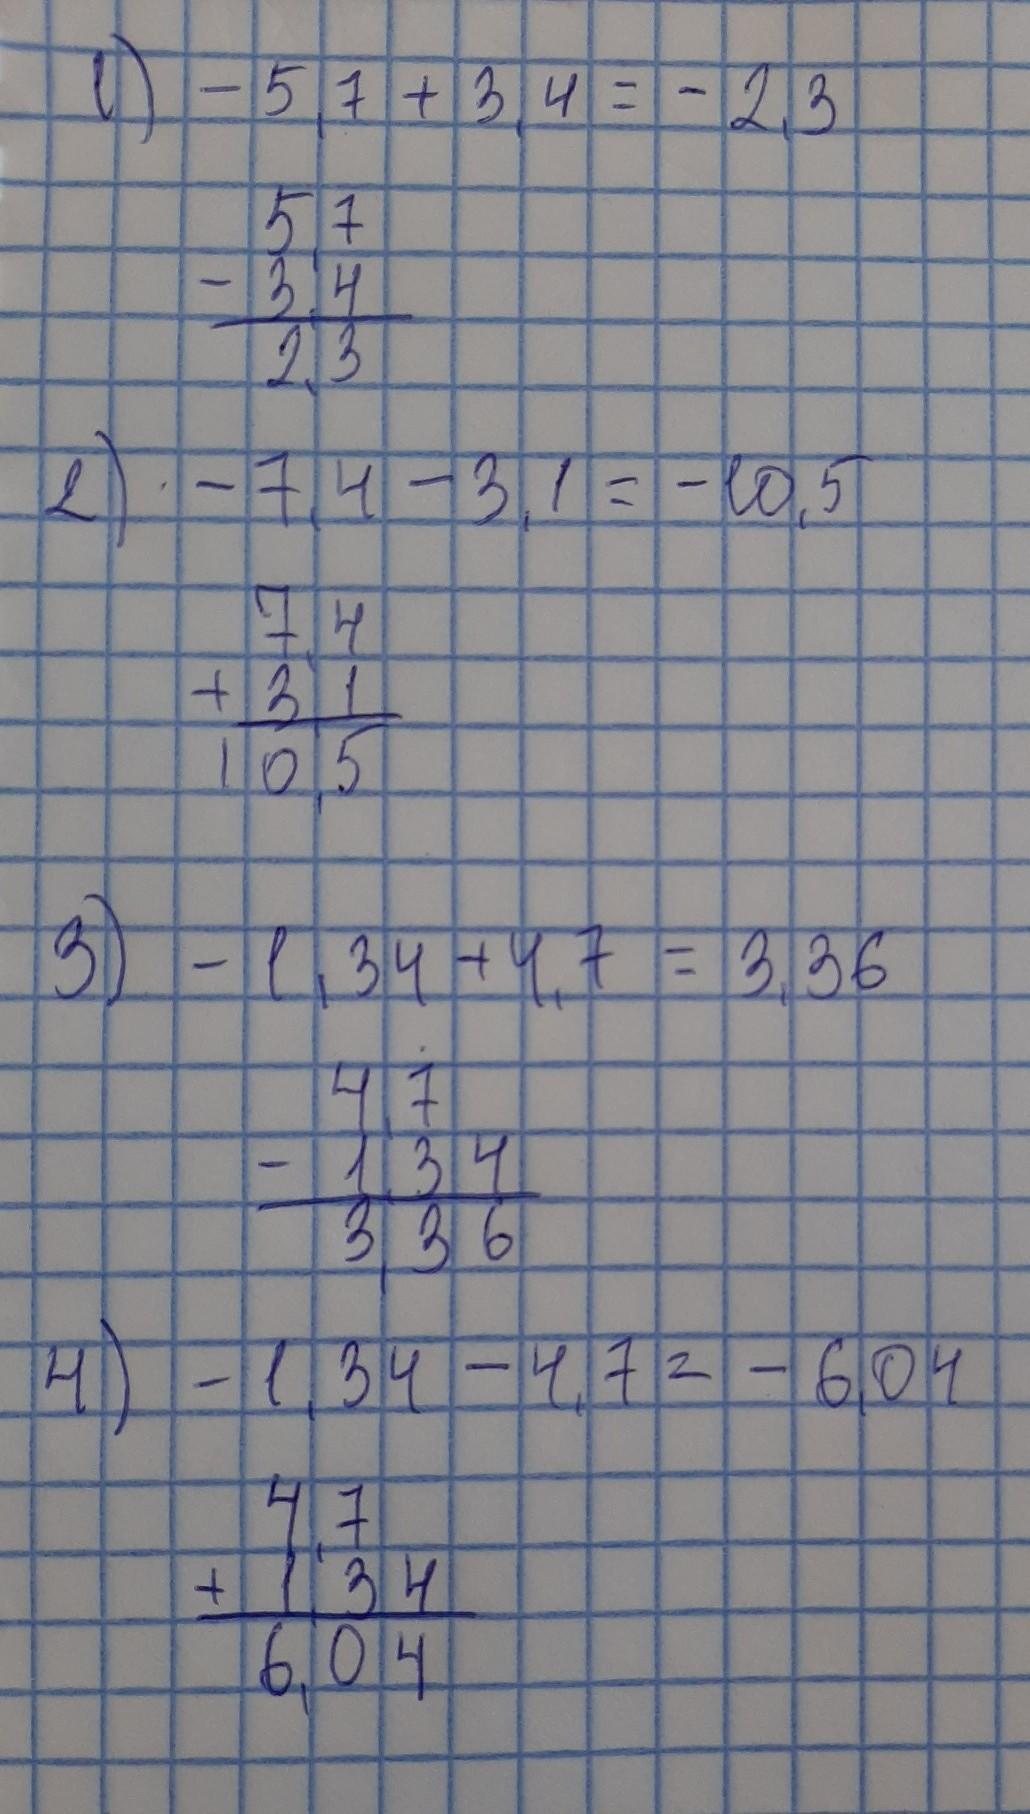 1) -5,7+3,4=-2,3
5,7
-3,4
2,3
2) -7,4-3,1=-10,5
7,4
+3,1
10,5
3) -1,34+4,7=3,36
4,7
-1,34
3,36
4) -1,34-4,7=-6,04
4,7
+1,34
6,04